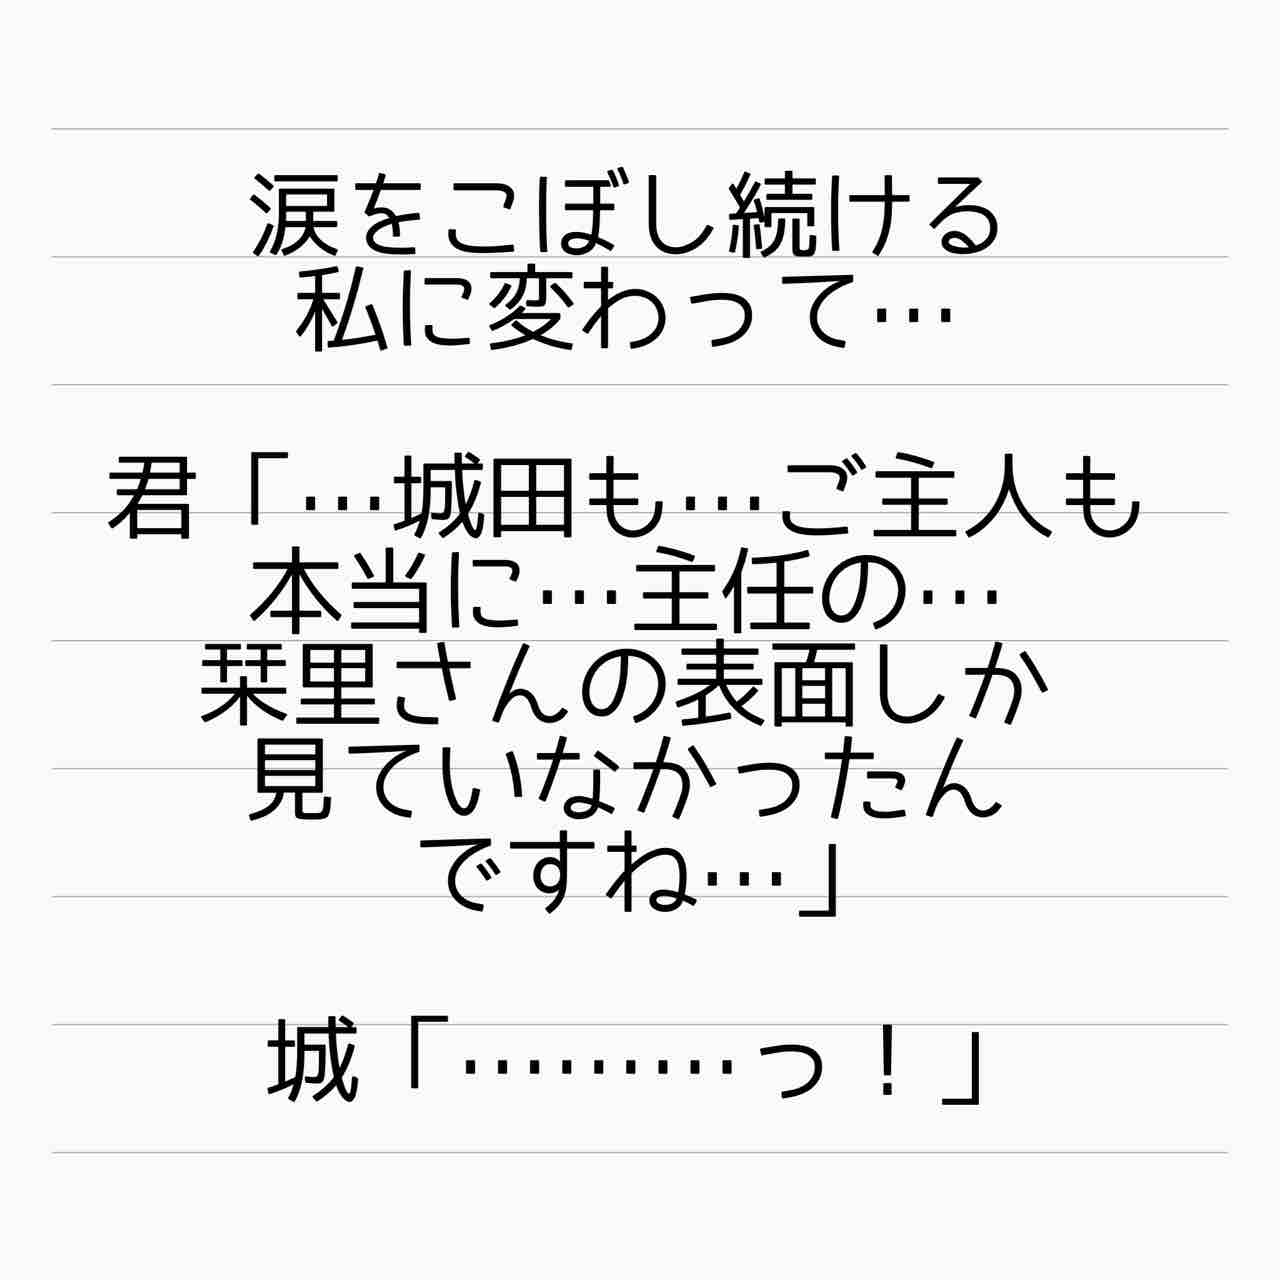 涙をこぼし続ける
私に変わって…
君「…城田も…ご主人も
本当に…主任の…
栞里さんの表面しか
見ていなかったん
ですね…」
城「………っ！」